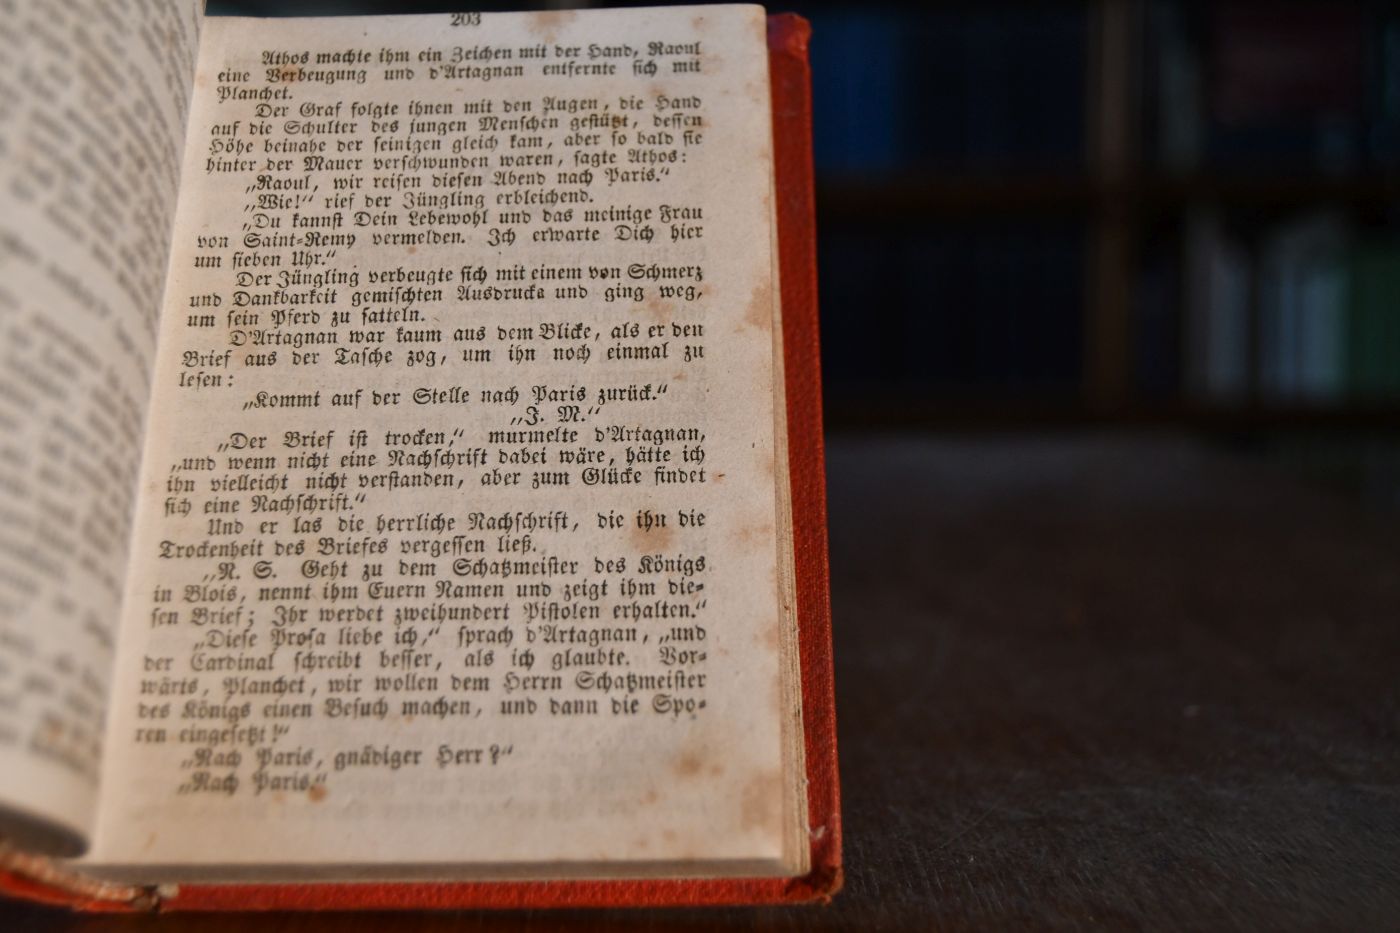 203
Athos machte ihm ein Zeichen mit der Hand, Raoul
eine Verbeugung und d'Artagnan entfernte sich mit
Planchet.
Der Graf folgte ihnen mit den Augen, die Hand
auf die Schulter des jungen Menschen gestützt, dessen
Höhe beinahe der seinigen gleich kam, aber so bald sie
hinter der Mauer verschwunden waren, sagte Athos:
„Raoul, wir reisen diesen Abend nach Paris.“
„Wie!“ rief der Jüngling erbleichend.
„Du kannst Dein Lebewohl und das meinige Frau
von Saint-Remy vermelden. Ich erwarte Dich hier
um sieben Uhr.“
Der Jüngling verbeugte sich mit einem von Schmerz
und Dankbarkeit gemischten Ausdrucke und ging weg,
um sein Pferd zu satteln.
D'Artagnan war kaum aus dem Blicke, als er den
Brief aus der Tasche zog, um ihn noch einmal zu
lesen:
„Kommt auf der Stelle nach Paris zurück.“
„J. M.“
„Der Brief ist trocken,“ murmelte d'Artagnan,
„und wenn nicht eine Nachschrift dabei wäre, hätte ich
ihn vielleicht nicht verstanden, aber zum Glücke findet
sich eine Nachschrift.“
Und er las die herrliche Nachschrift, die ihn die
Trockenheit des Briefes vergessen ließ.
„N. S. Geht zu dem Schatzmeister des Königs
in Blois, nennt ihm Euern Namen und zeigt ihm die-
sen Brief; Ihr werdet zweihundert Pistolen erhalten.“
„Diese Prosa liebe ich,“ sprach d'Artagnan, „und
der Cardinal schreibt besser, als ich glaubte. Vor-
wärts, Planchet, wir wollen dem Herrn Schatzmeister
des Königs einen Besuch machen, und dann die Spo-
ren eingesetzt!“
„Nach Paris, gnädiger Herr?“
„Nach Paris.“